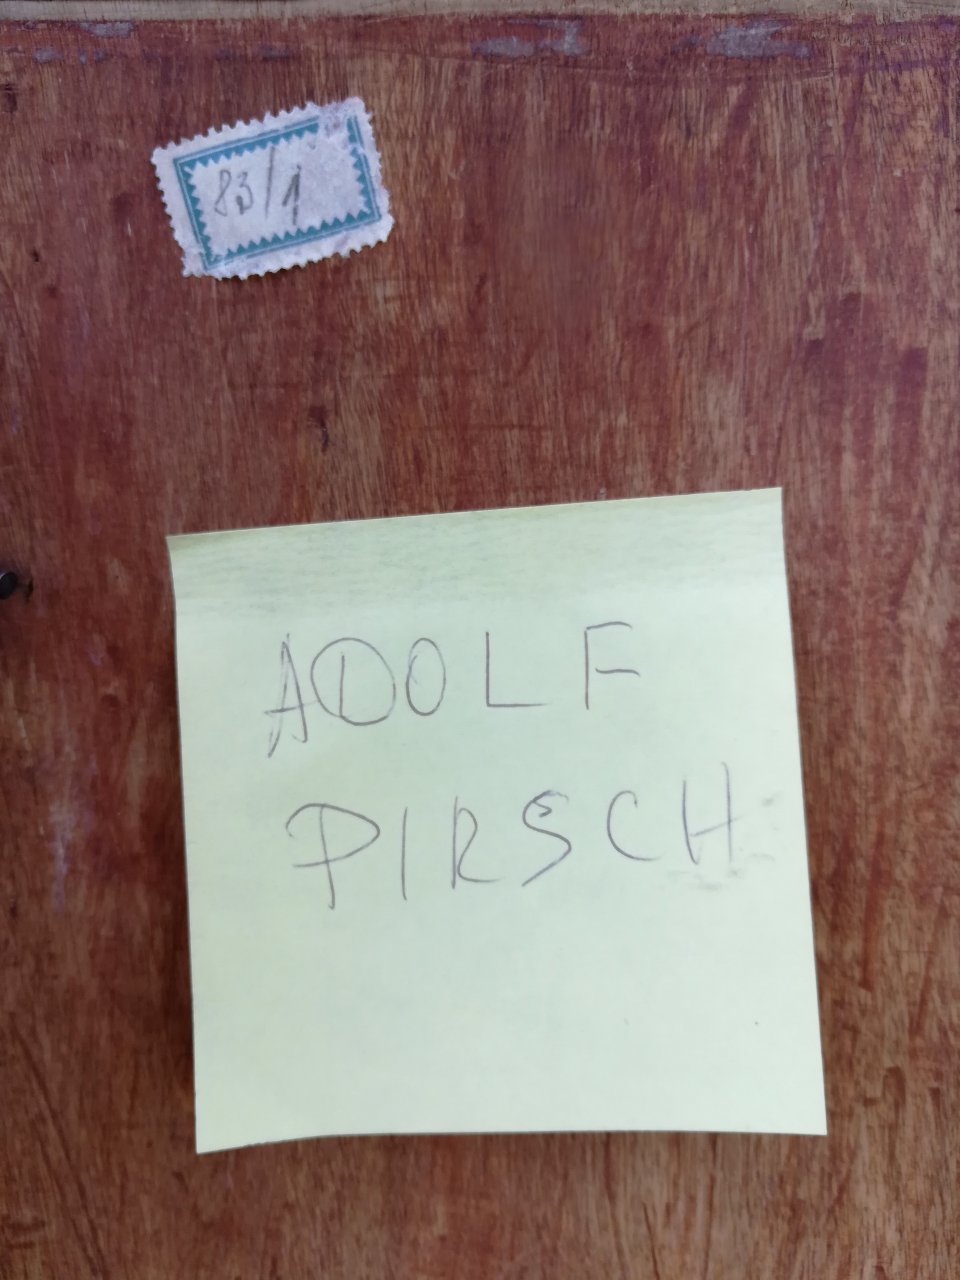 83/1
ADOLF
PIRSCH